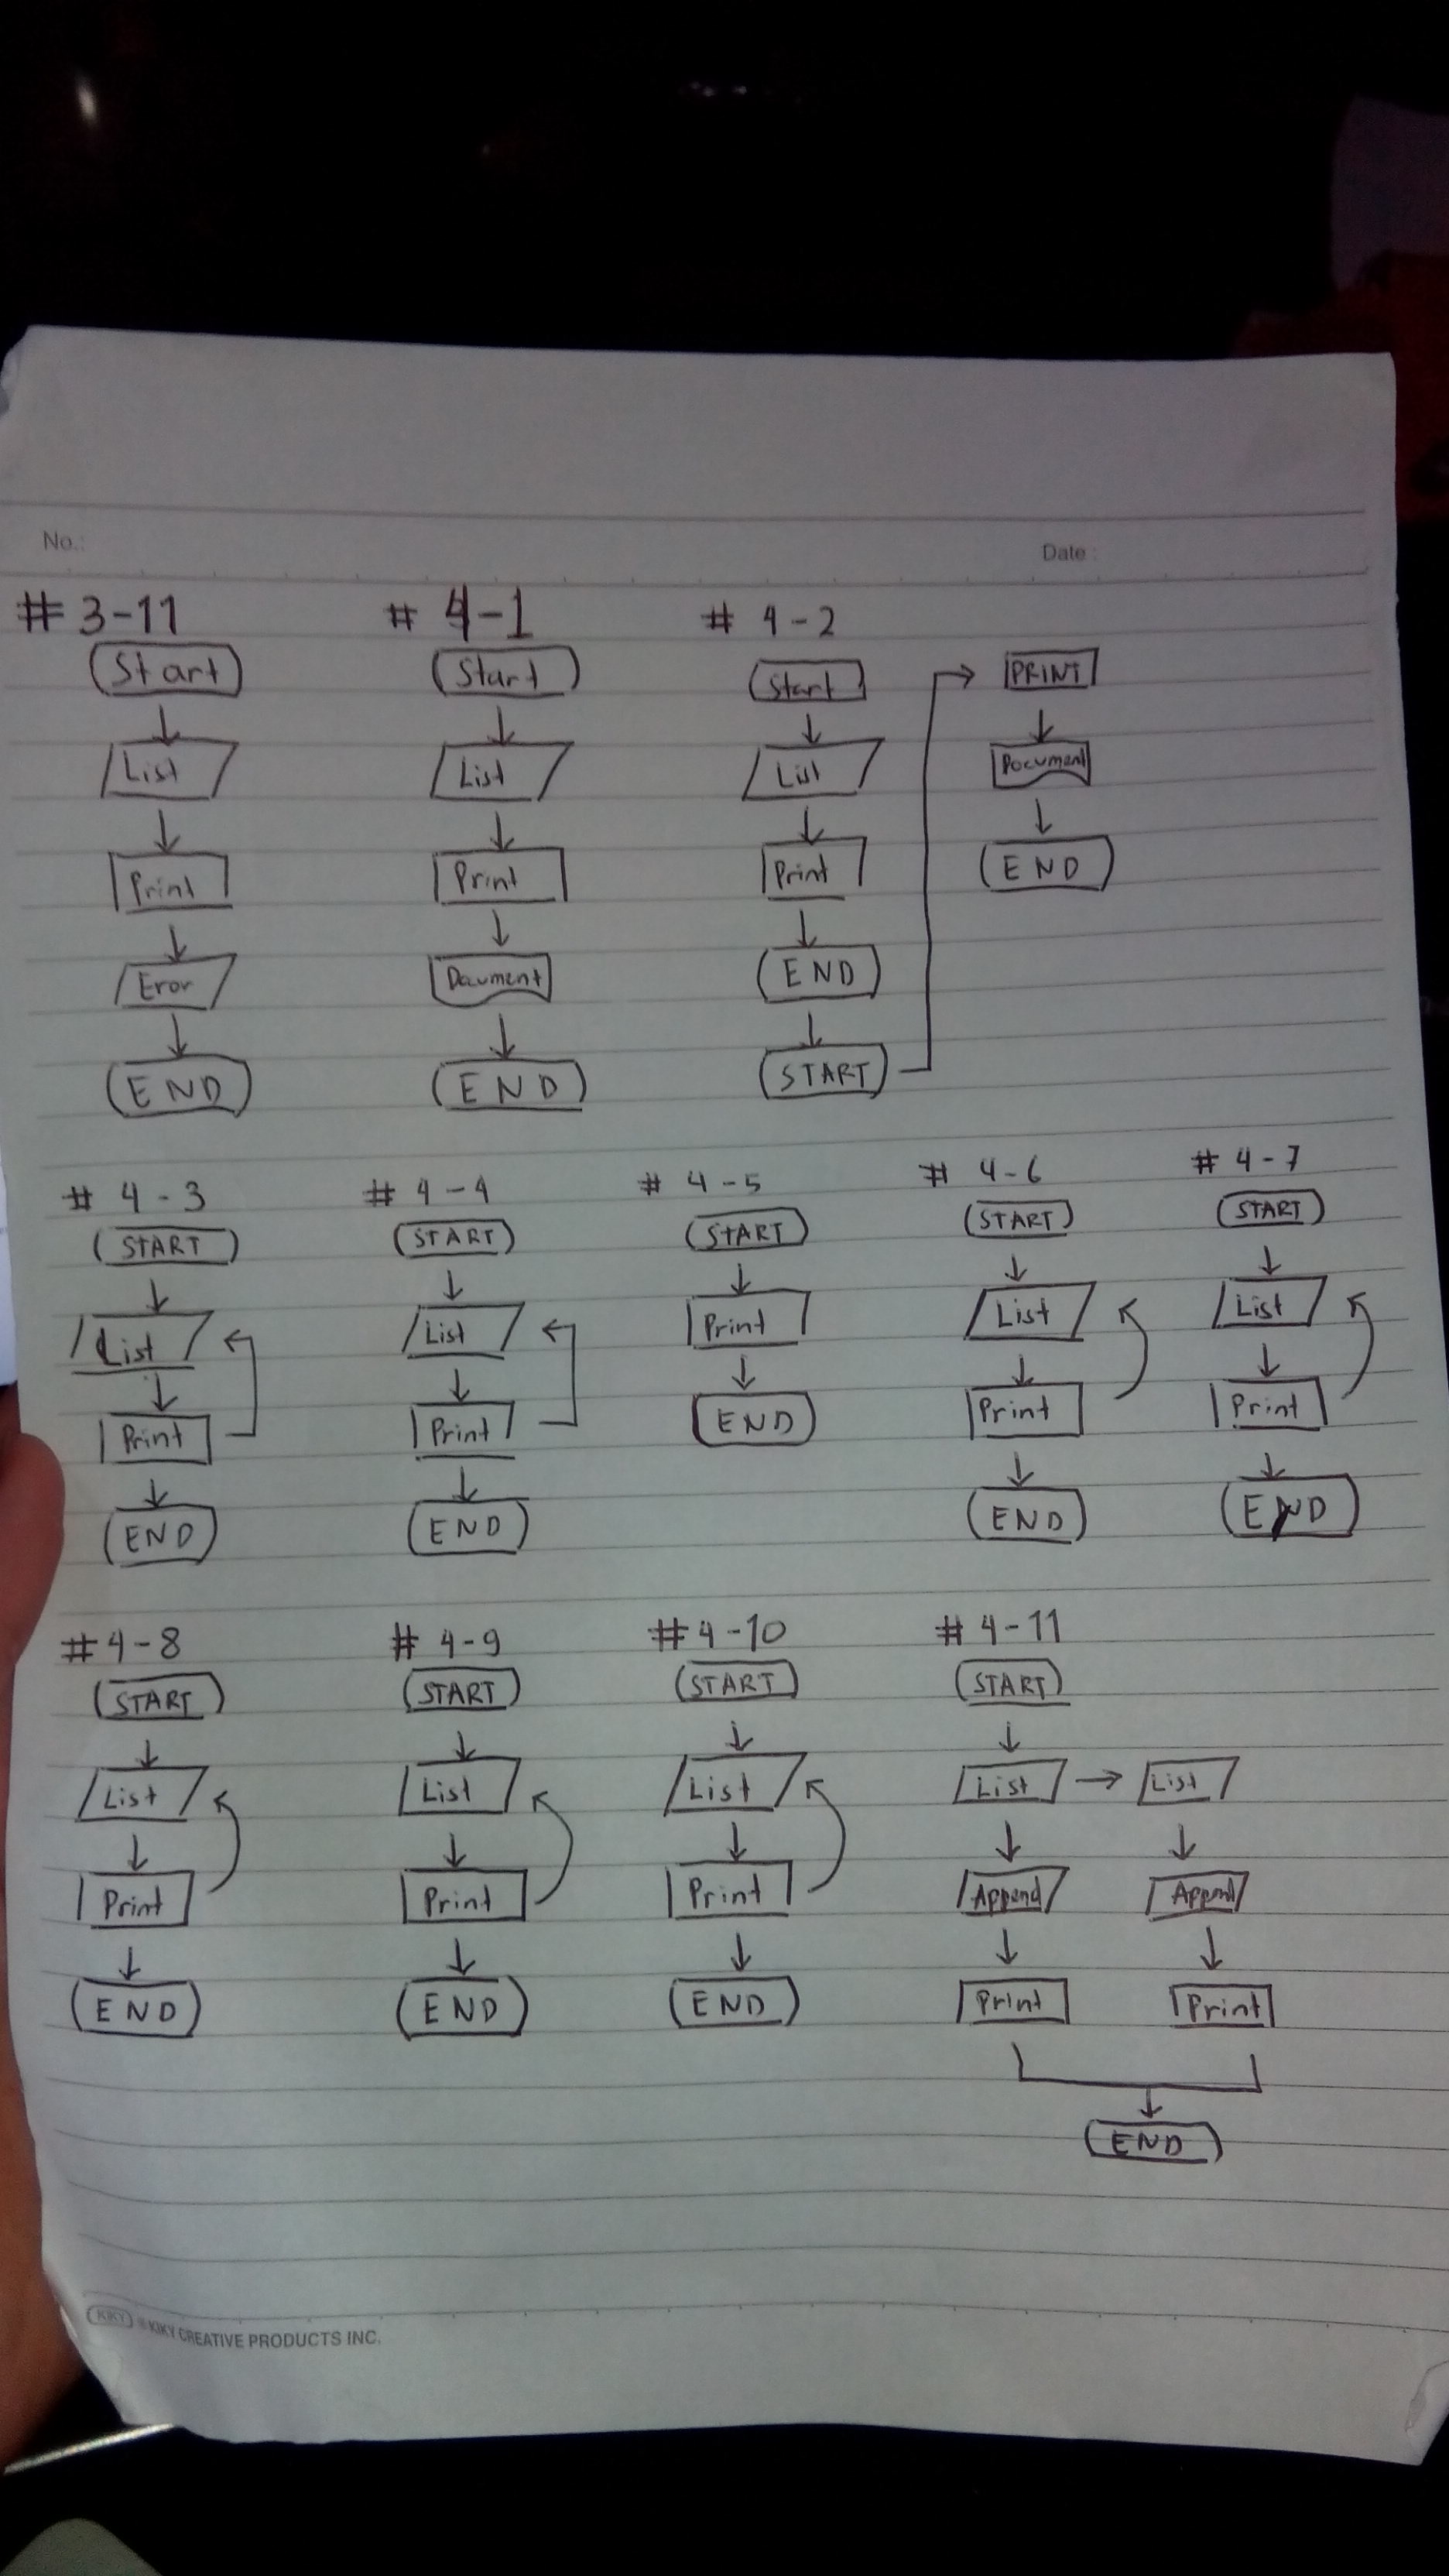 No.:
Date :
# 3-11
Start
List
Print
Eror
END
# 4-1
Start
List
Print
Document
END
# 4-2
Start
List
Print
END
START
PRINT
Document
END
# 4-3
START
List
Print
END
# 4-4
START
List
Print
END
# 4-5
START
Print
END
# 4-6
START
List
Print
END
# 4-7
START
List
Print
END
# 4-8
START
List
Print
END
# 4-9
START
List
Print
END
# 4-10
START
List
Print
END
# 4-11
START
List
Append
Print
List
Append
Print
END
KIKY ® KIKY CREATIVE PRODUCTS INC.